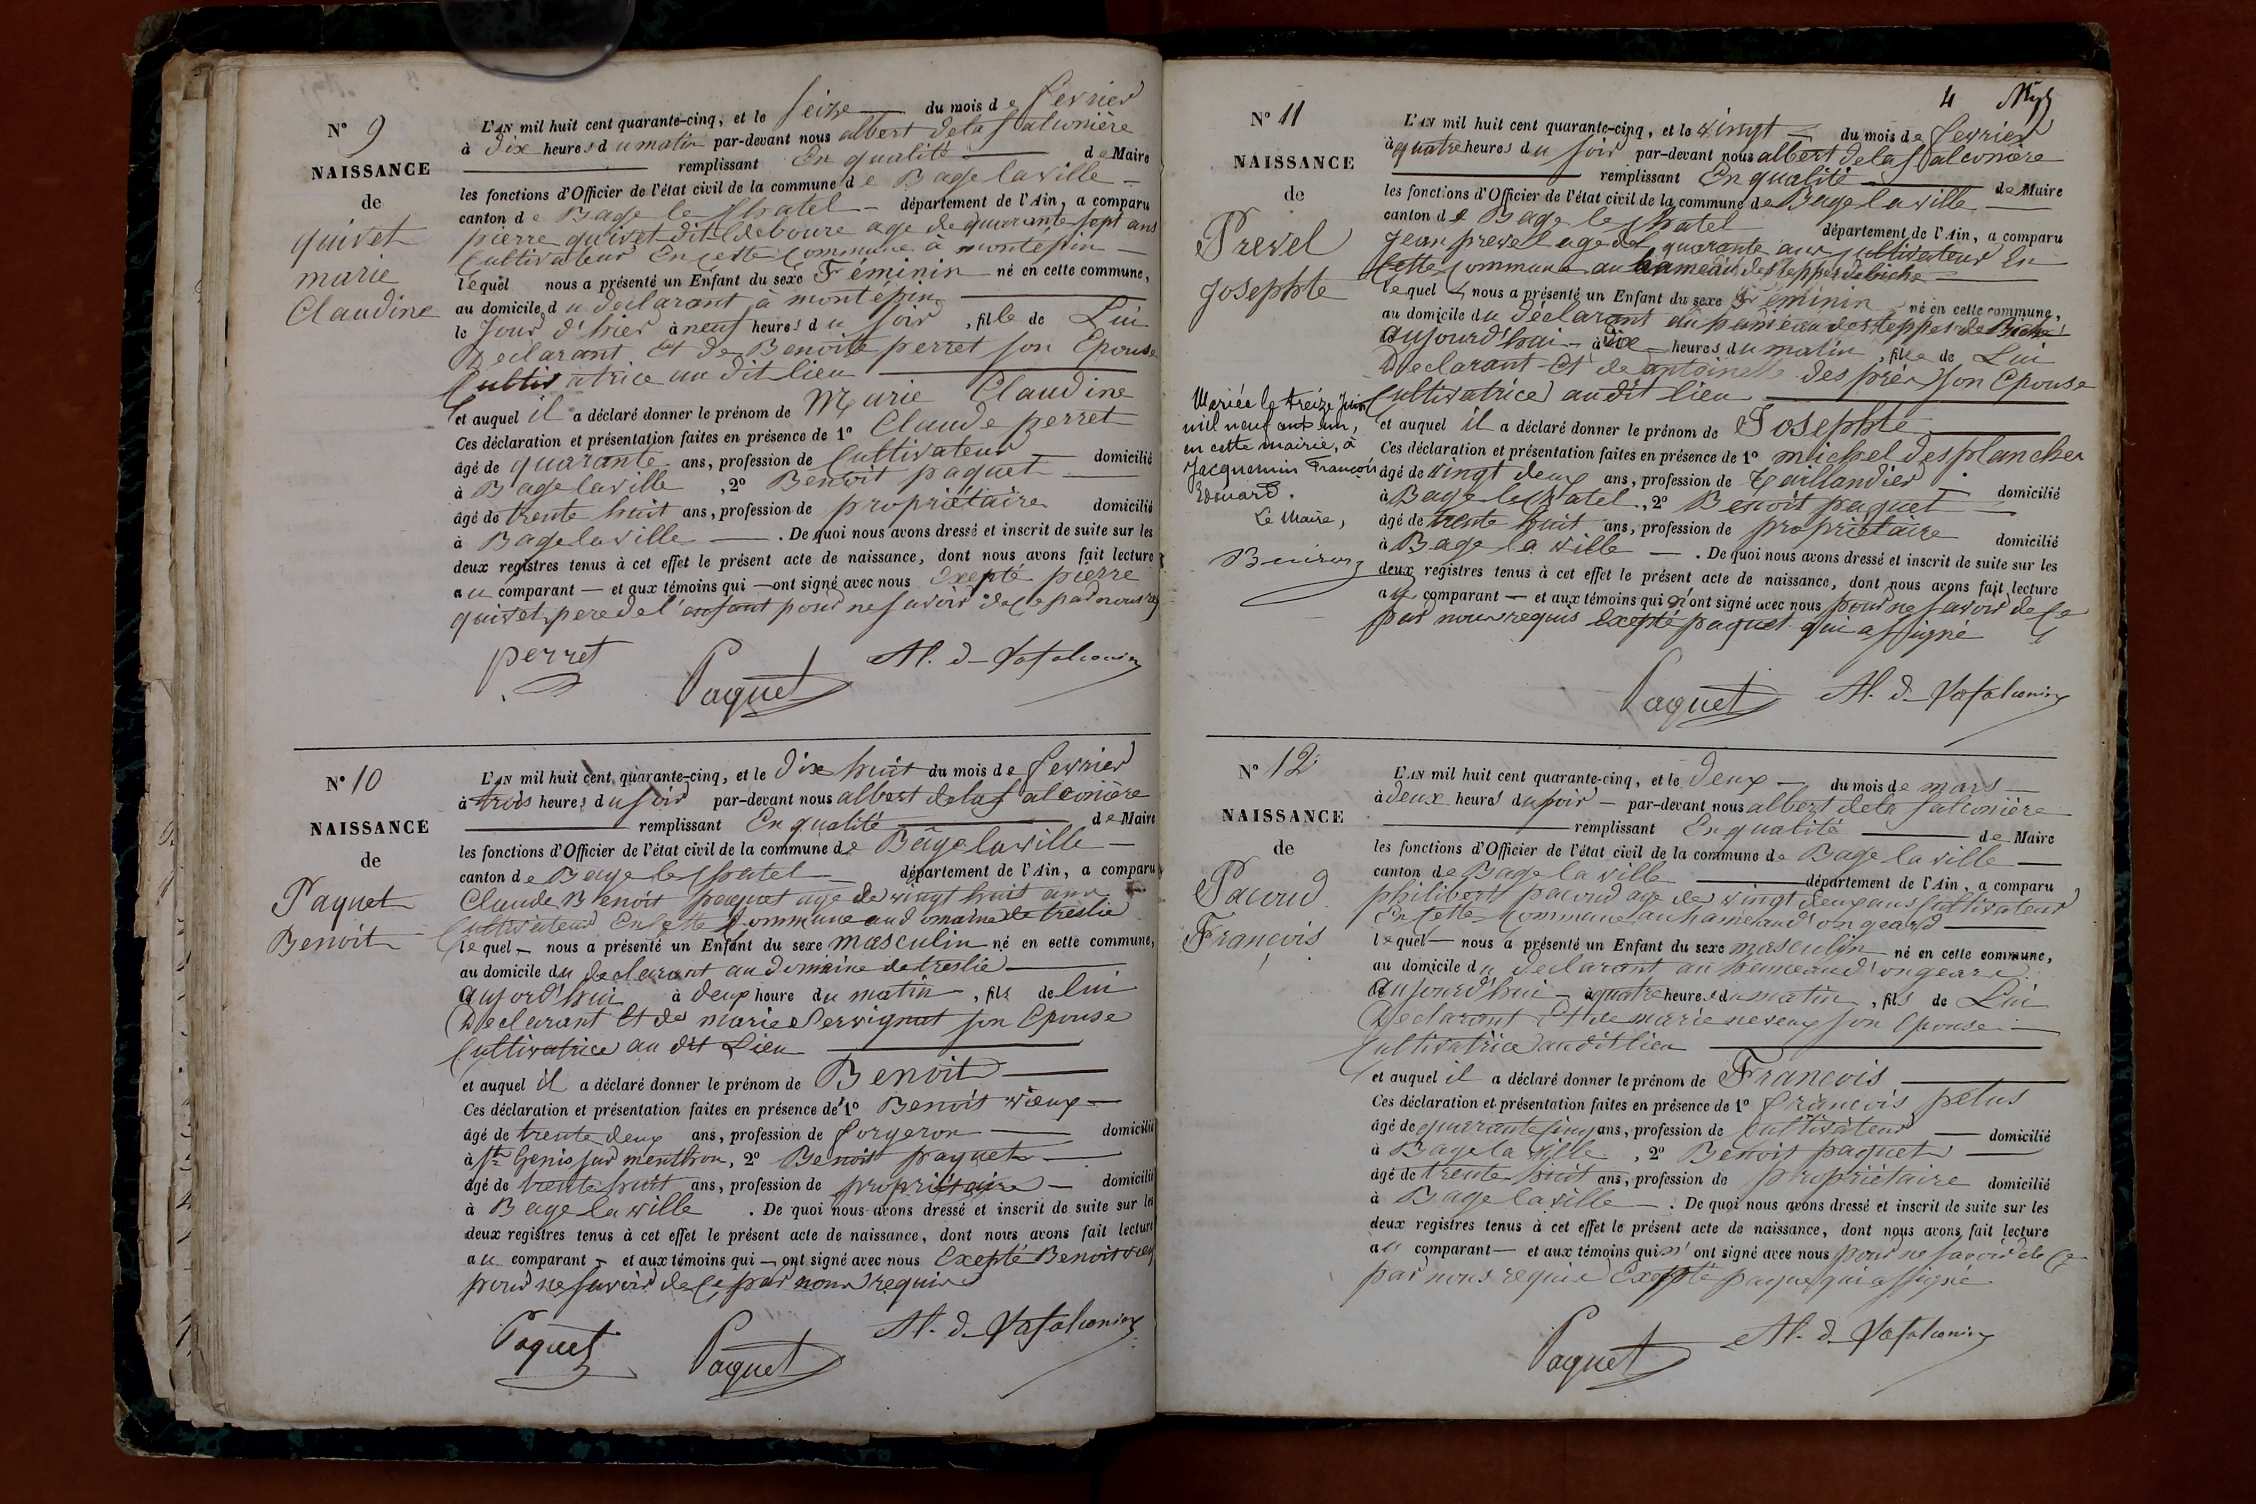 N° 9
NAISSANCE
de
quivet
marie
Claudine
L'AN mil huit cent quarante-cinq, et le seize — du mois de fevrier
à dix heures du matin par-devant nous albert de la falconière
remplissant En qualité — de Maire
les fonctions d'Officier de l'état civil de la commune de Bage la ville —
canton de Bage le Chatel — département de l'Ain, a comparu
pierre quivet dit deboure age de quarante sept ans
Cultivateur En cette Commune à montepin —
lequel nous a présenté un Enfant du sexe Féminin né en cette commune,
au domicile du declarant à montépin —
le Jour d'hier à neuf heures du soir, fille de Lui
Declarant Et de Benoite perret son Epouse
Cultivatrice au dit lieu —
et auquel il a déclaré donner le prénom de Marie Claudine
Ces déclaration et présentation faites en présence de 1° Claude perret
âgé de quarante ans, profession de Cultivateur — domicilié
à Bage la ville, 2° Benoit paquet —
âgé de trente huit ans, profession de propriétaire domicilié
à Bage la ville — . De quoi nous avons dressé et inscrit de suite sur les
deux registres tenus à cet effet le présent acte de naissance, dont nous avons fait lecture
au comparant — et aux témoins qui — ont signé avec nous Exepté pierre
quivet pere de l'enfant pour ne savoir de ce par nous
perret
Paquet
Al. d- Lafalconière
N° 10
NAISSANCE
de
Paquet
Benoit
L'AN mil huit cent quarante-cinq, et le dix huit du mois de fevrier
à trois heures du soir par-devant nous albert de la falconière
remplissant En qualité — de Maire
les fonctions d'Officier de l'état civil de la commune de Bâge la ville —
canton de Bage le Chatel — département de l'Ain, a comparu
Claude Benoit paquet age de vingt huit ans
Cultivateur En Cette Commune au domaine de treslie
lequel — nous a présenté un Enfant du sexe masculin né en cette commune,
au domicile du declarant au domaine de treslie —
aujord'hui à deux heure du matin, fils de lui
Declarant Et de marie Pervignat son Epouse
Cultivatrice au dit Lieu —
et auquel il a déclaré donner le prénom de Benoit —
Ces déclaration et présentation faites en présence de 1° Benoit vieux —
âgé de trente deux ans, profession de forgeron — domicilié
à St Genis sur menthon, 2° Benoit paquet —
âgé de trente huit ans, profession de propriétaire — domicilié
à Bage la ville . De quoi nous avons dressé et inscrit de suite sur les
deux registres tenus à cet effet le présent acte de naissance, dont nous avons fait lecture
au comparant — et aux témoins qui — ont signé avec nous Exepté Benoit vieux
pour ne savoir de ce par nous requis
Paquet
Paquet
Al. d- Lafalconière
4
N° 11
NAISSANCE
de
Prevel
Josephte
Mariée le treize Juin
mil neuf cent un,
en cette mairie, à
Jacquemin François
Edouard.
Le Maire,
L'AN mil huit cent quarante-cinq, et le vingt — du mois de fevrier
à quatre heures du soir par-devant nous albert de la falconière
remplissant En qualité — de Maire
les fonctions d'Officier de l'état civil de la commune de Bage la ville —
canton de Bage le Chatel département de l'Ain, a comparu
Jean prevel age de quarante ans cultivateur En
Cette Commune au hameau des teppes de biche —
lequel — nous a présenté un Enfant du sexe Féminin né en cette commune,
au domicile du déclarant au hameau des teppes de Biche
aujourd'hui — à dix heures du matin, fille de Lui
Declarant Et de antoinette des prés son Epouse
Cultivatrice au dit lieu —
et auquel il a déclaré donner le prénom de Josephte —
Ces déclaration et présentation faites en présence de 1° michel Desplanches
âgé de vingt deux ans, profession de Taillandier — domicilié
à Bage le Chatel, 2° Benoit paquet —
âgé de trente huit ans, profession de propriétaire domicilié
à Bage la ville — . De quoi nous avons dressé et inscrit de suite sur les
deux registres tenus à cet effet le présent acte de naissance, dont nous avons fait lecture
au comparant — et aux témoins qui n'ont signé avec nous pour ne savoir de ce
par nous requis Excepté paquet qui a signé
Paquet
Al. d- Lafalconière
N° 12
NAISSANCE
de
Pacoud
François
L'AN mil huit cent quarante-cinq, et le deux — du mois de mars —
à deux heures du soir — par-devant nous albert de la falconière
remplissant En qualité — de Maire
les fonctions d'Officier de l'état civil de la commune de Bage la ville —
canton de Bage la ville — département de l'Ain, a comparu
philibert pacoud age de vingt deux ans Cultivateur
En Cette Commune au hameau d'ongeard —
lequel — nous a présenté un Enfant du sexe masculin né en cette commune,
au domicile du declarant au hameau d'ongeard
aujourd'hui — à quatre heures du matin, fils de Lui
Declarant Et de marie neveux son Epouse —
Cultivatrice au dit lieu —
et auquel il a déclaré donner le prénom de Francois —
Ces déclaration et présentation faites en présence de 1° francois pelus
âgé de quarante cinq ans, profession de Cultivateur — domicilié
à Bage la ville, 2° Benoit paquet —
âgé de trente huit ans, profession de propriétaire domicilié
à Bage la ville — . De quoi nous avons dressé et inscrit de suite sur les
deux registres tenus à cet effet le présent acte de naissance, dont nous avons fait lecture
au comparant — et aux témoins qui n'ont signé avec nous pour ne savoir de ce
par nous requis Excepté paquet qui a signé
Paquet
Al. d- Lafalconière